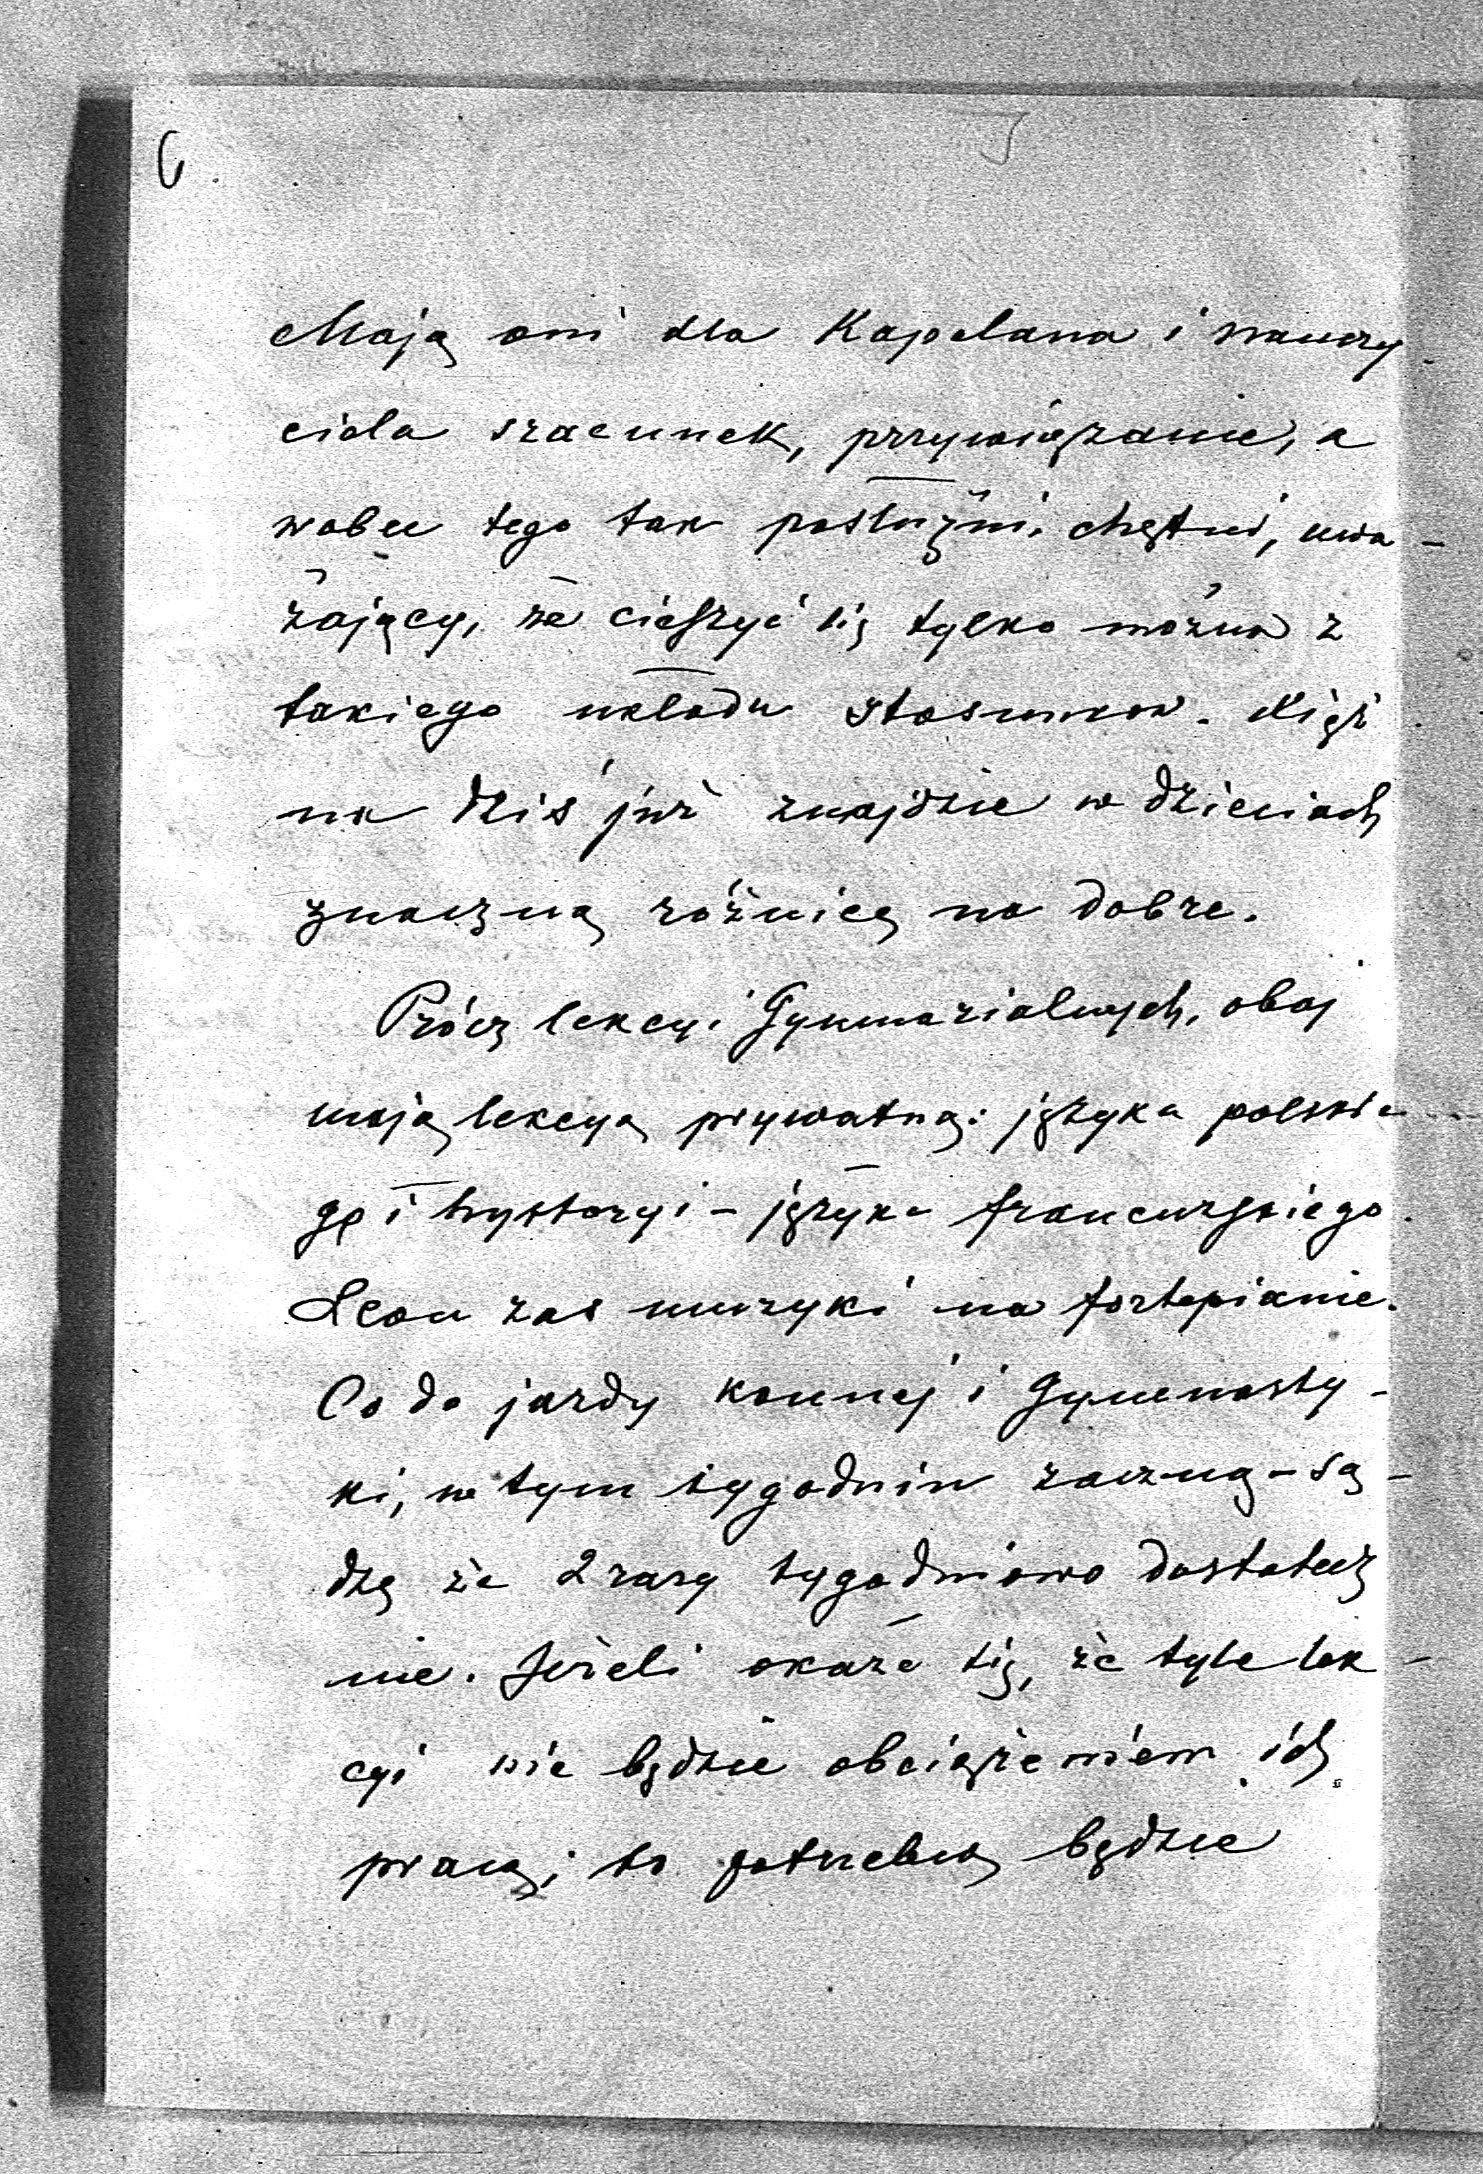 6
Mają oni dla Kapelana i nauczy-
ciela szacunek, przywiązanie, a
wobec tego tak posłuszni, chętni, uwa-
żający, że cieszyć się tylko można z
takiego układu stosunków. Xięż
na dziś już znajdzie w dzieciach
znaczną różnicę na dobre.
Prócz lekcyi Gymnazialnych, obaj
mają lekcyą prywatną: języka polskie
go i hystoryi - języka francuzkiego.
Leon zaś muzyki na fortepianie.
Co do jazdy konnej i Gymnasty-
ki, w tym tygodniu zaczną - są-
dzę że 2 razy tygodniowo dostatecz
nie. Jeżeli okaże się, że tyle lek-
cyi nie będzie obciążeniem ich
pracą; to potrzebną będzie